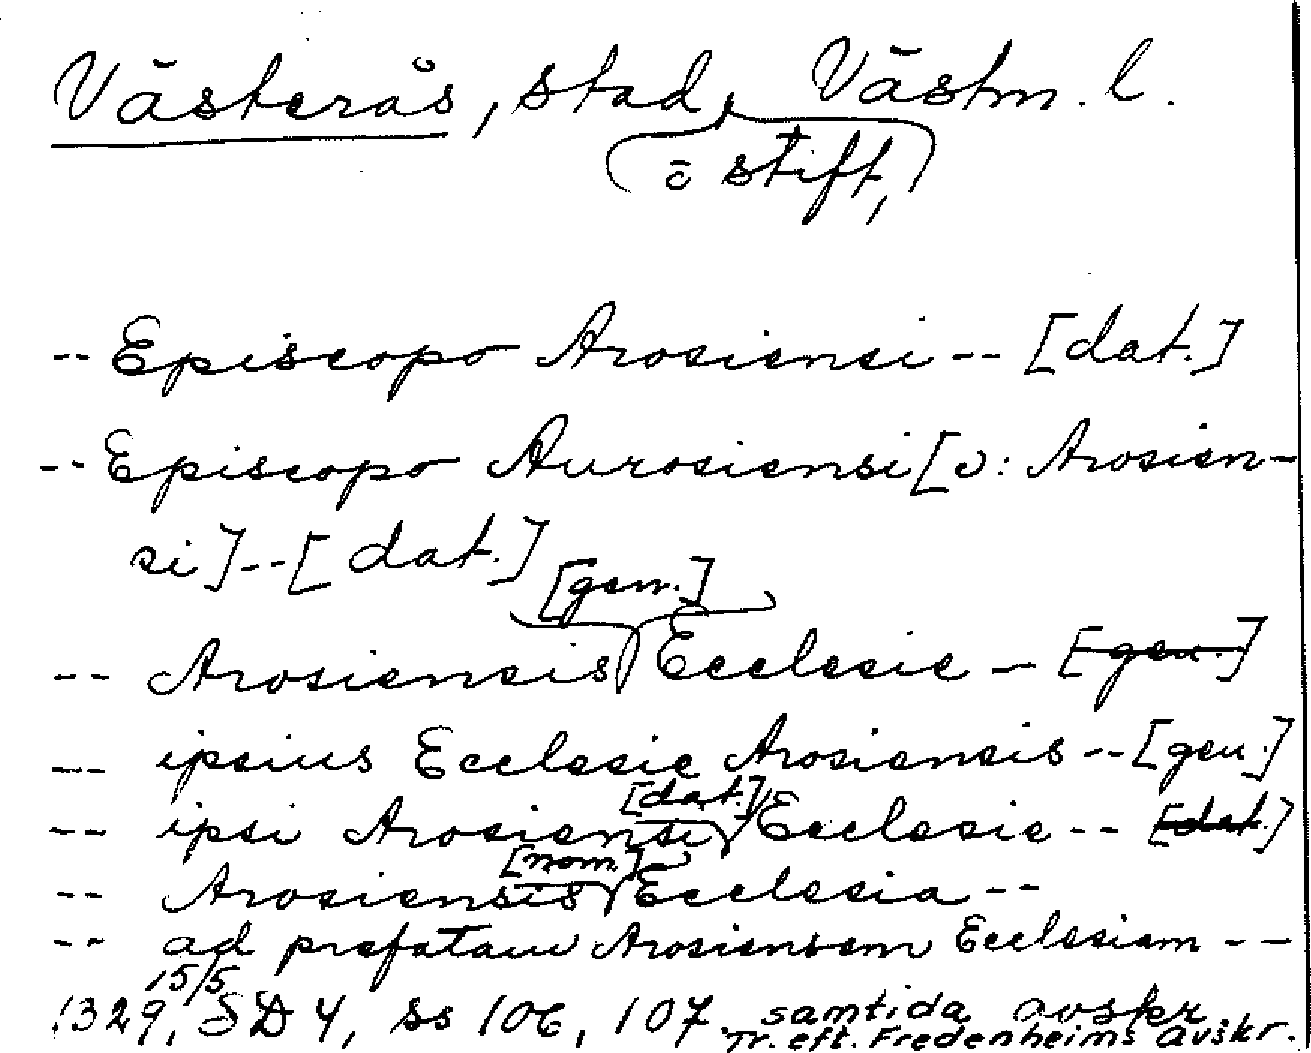 Västerås, stad, Västm. l.
o stift,
-- Episcopo Arosiensi -- [dat.]
-- Episcopo Aurosiensi [ɔ: Arosien-
si] -- [dat.]
[gen.]
-- Arosiensis Ecclesie -- [gen.]
-- ipsius Ecclesie Arosiensis -- [gen.]
[dat.]
-- ipsi Arosiensi Ecclesie -- [dat.]
[nom.]
-- Arosiensis Ecclesia --
-- ad prefatam Arosiensem Ecclesiam --
15/5
1329, SD 4, ss 106, 107. samtida avskr.
Tr. eft. Fredenheims avskr.